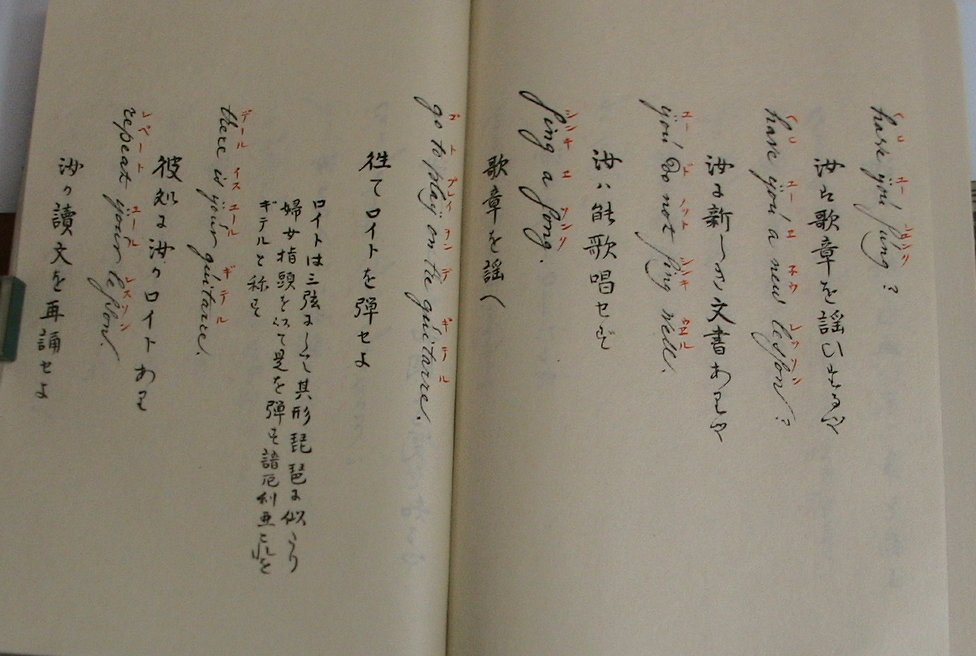 have you sung?
ハヒ ユー シュング
汝ハ歌章を謡ひまるや
have you a new lesson?
ハヒ ユー エ ネウ レッスン
汝に新しきの文書ありや
you do not sing well.
ユー ド ノット シンキ ウエル
汝ハ能歌唱せず
sing a song.
シンキ エ ソング
歌章を謡へ
go to play on the guitarre.
ゴ ト プレイ ヲン デ ギテル
往てロイトを弾せよ
ロイトは三弦にして其形琵琶に似たり
婦女指頭を以て是を弾ず諳厄利亜これを
ギテルと称す
there is your guitarre.
デール イス ユール ギテル
彼処に汝のロイトあり
repeat your lesson.
レペート ユール レスソン
汝の讀文を再誦せよ